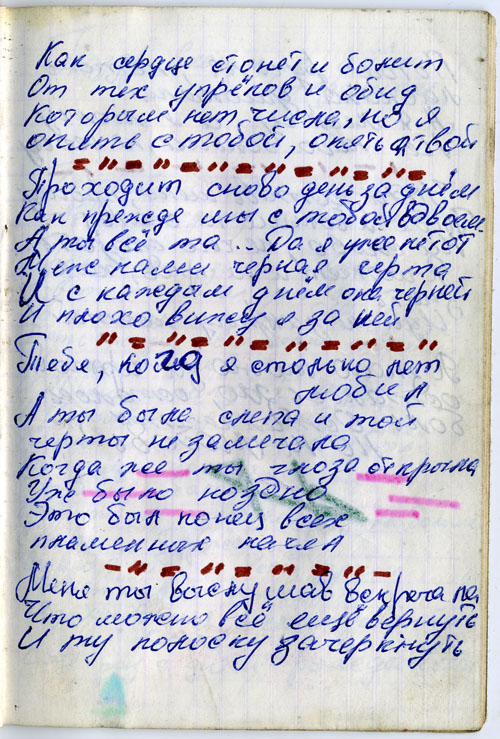 Как сердце стонет и болит
От тех упрёков и обид
Которым нет числа, но я
опять с тобой, опять я твой
Проходит снова день за днём
Как прежде мы с тобой вдвоём.
А ты всё та... Да я уже не тот
Меж нами черная черта
И с каждым днём она черней
И плохо вижу я за ней
Тебя, кого я столько лет
любил
А ты была слепа и той
черты не замечала
Когда же ты глаза открыла
Уже было поздно
Это был конец всех
пламенных начал
Меня ты выслушав вскричала
Что можно всё ещё вернуть
И ту полоску зачеркнуть